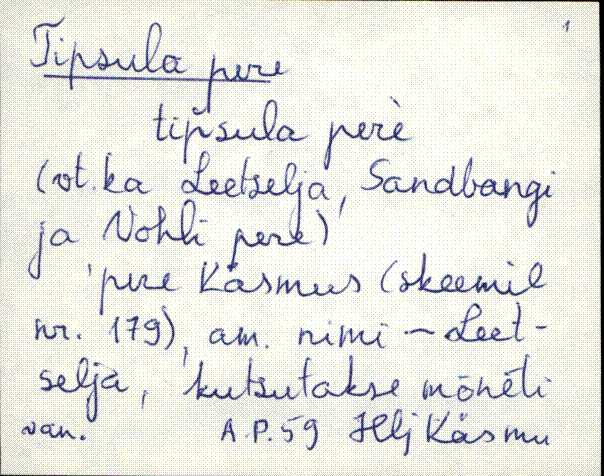 1
Tipsula pere
tip̀sula perè
(vt. ka Leetselja, Sandbangi
ja Nohli pere)
pere Käsmus (skeemil
nr. 179), am. nimi – Leet-
selja, kutsutakse mõnèti
van. A.P. 59 Hlj Käsmu